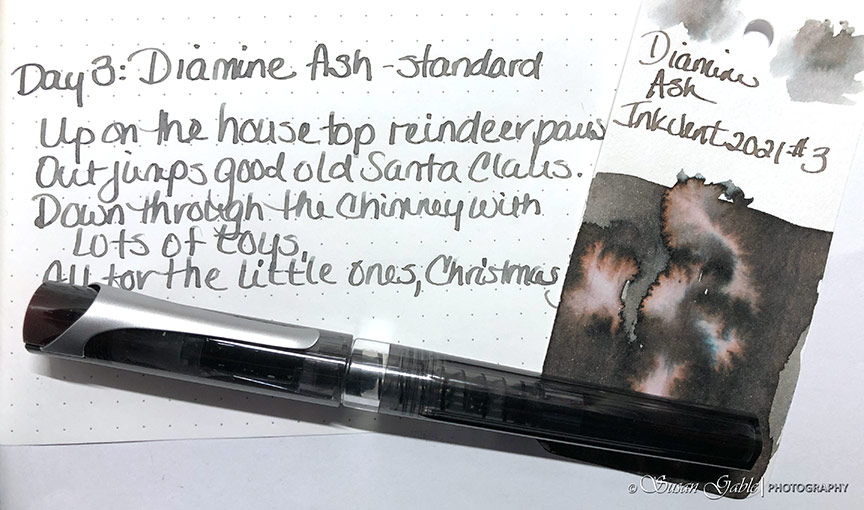 Day 3: Diamine Ash - standard
Up on the housetop reindeer paws
Out jumps good old Santa Claus.
Down through the Chimney with
Lots of toys,
All for the little ones, Christmas
Diamine
Ash
Inkvent 2021 #3
© Susan Gable | PHOTOGRAPHY